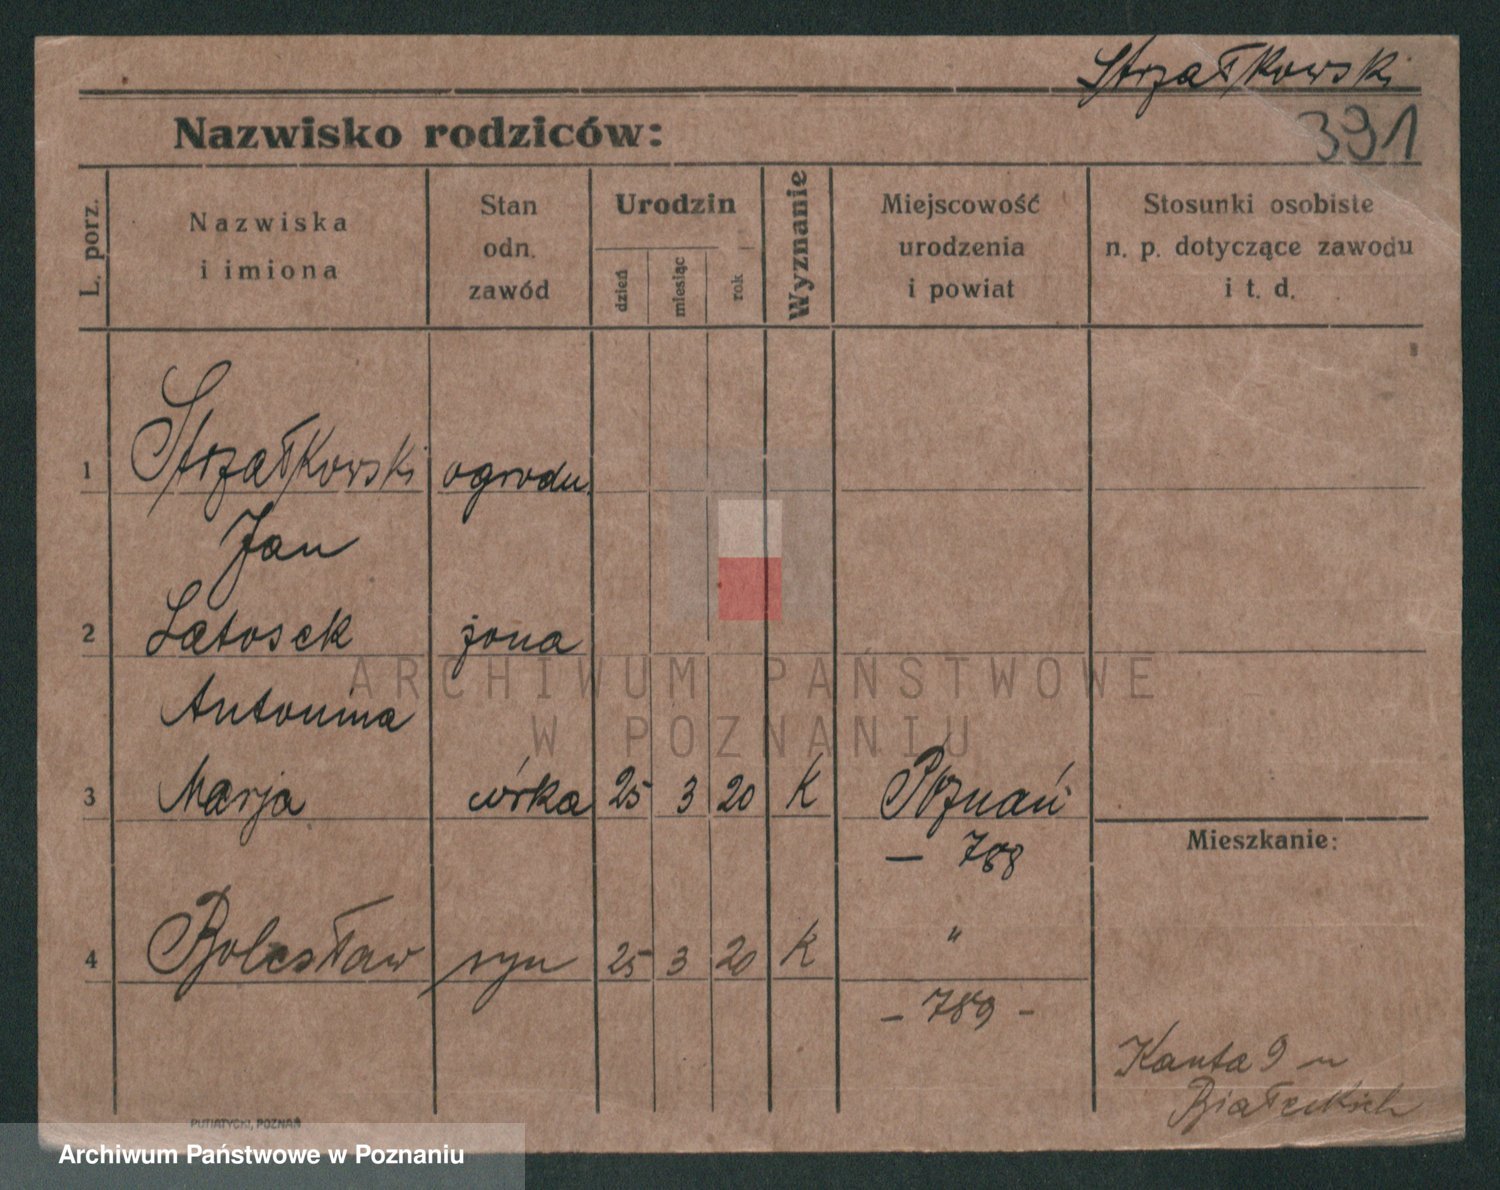 Strzałkowski
Nazwisko rodziców:
391
L. porz.
Nazwiska
i imiona
Stan
odn.
zawód
Urodzin
dzień
miesiąc
rok
Wyznanie
Miejscowość
urodzenia
i powiat
Stosunki osobiste
n. p. dotyczące zawodu
i t. d.
1 Strzałkowski ogrodn.
Jan
2 Latosek żona
Antonina
3 Marja córka 25 3 20 K Poznań
— 788
Mieszkanie:
4 Bolesław syn 25 3 20 K "
- 789 -
Kanta 9 u
Białeckich
PUTIATYCKI, POZNAŃ
ARCHIWUM PAŃSTWOWE
W POZNANIU
Archiwum Państwowe w Poznaniu